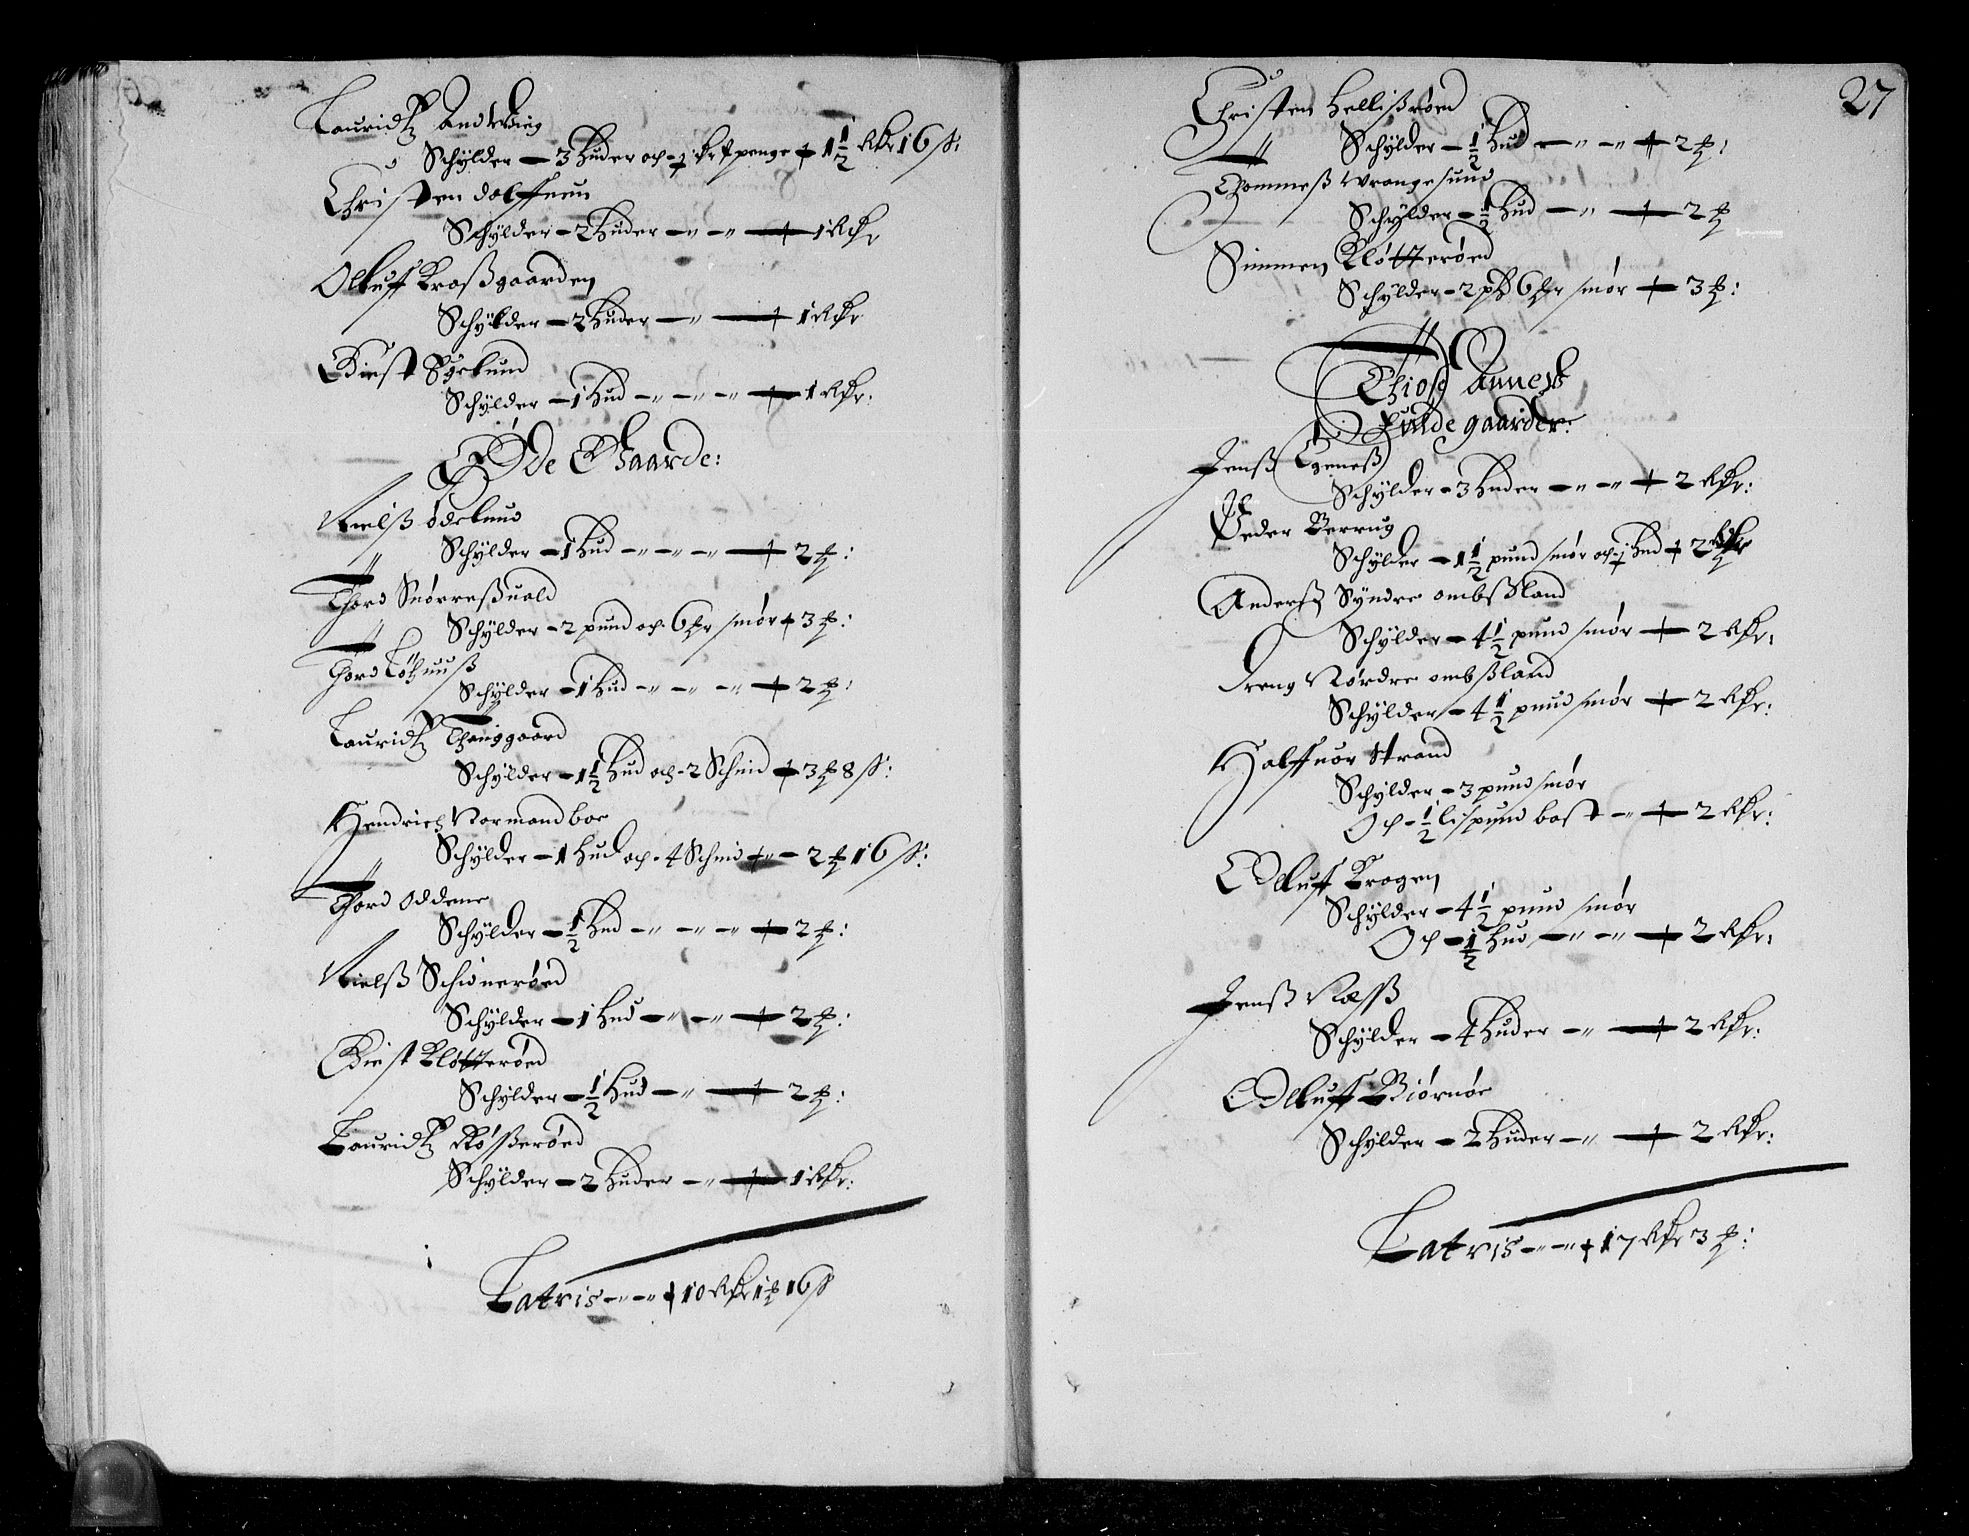 Lauridtz Andebieg
Schÿlder - 3 huder och - 1 penge + 1½ Rdr 16 ß:
Christen dalffuen
Schÿlder - 2 huder - + 1 Rdr
Olluff Kroßgaarden
Schÿlder - 2 huder - + 1 Rdr
Giest Bÿelund
Schÿlder - 1 Hud - + 1 Rdr:
Øde Gaarde:
Nielß ødelund
Schÿlder - 1 Hud - + 2 ₰:
Thord Snørreßuald
Schÿlder - 2 pund och 6 smør + 3 ₰:
Thord
Schÿlder - 1 Hud - + 2 ₰:
Lauridtz Thanggaard
Schÿlder - 1½ Hud och - 2 Schind + 3 ₰ 8 ß:
Hendrich Normandboe
Schÿlder - 1 Hud och - 4 Schind + - 2 ₰ 16 ß:
Thord Oddene
Schÿlder - ½ Hud - + 2 ₰:
Nielß Schionerøed
Schÿlder - 1 Hud - + 2 ₰:
Giest Kløtterøed
Schÿlder - ½ Hud - + 2 ₰:
Lauridtz Røßerøed
Schÿlder - 2 Huder - + 1 Rdr:
Latris - + 10 Rdr 1 ₰ 16 ß
27
Christen Hellißrøed
Schÿlder - ½ Hud - + 2 ₰:
Thommeß Wrangesund
Schÿlder - ½ Hud - + 2 ₰
Simmen Kløtterøed
Schÿlder - 2 pd 6 smør + 3 ₰:
Thiøs Annex
Fulde gaarder:
Jenß Egeneß
Schÿlder - 3 Huder - + 2 Rdr:
Peder Berrug
Schÿlder - 1½ pund smør och 1 Hud + 2 Rdr
Anderß Sÿndre ombßland
Schÿlder - 4½ pund smør + 2 Rdr:
Dreng Nørdre ombßland
Schÿlder - 4½ pund smør + 2 Rdr:
Halffuor Strand
Schÿlder - 3 pund smør
Och - ½ lispund bast - + 2 Rdr:
Olluff Krogen
Schÿlder - 4½ pund smør
Och - ½ Hud - + 2 Rdr:
Jenß Næsß
Schÿlder - 4 Huder - + 2 Rdr:
Olluff Biørnøe
Schÿlder - 2 Huder - + 2 Rdr:
Latris - + 17 Rdr 3 ₰: